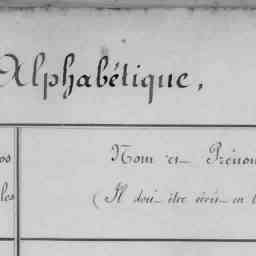 Alphabétique,
os Nom et Prénom
les (Il doit être écrit en